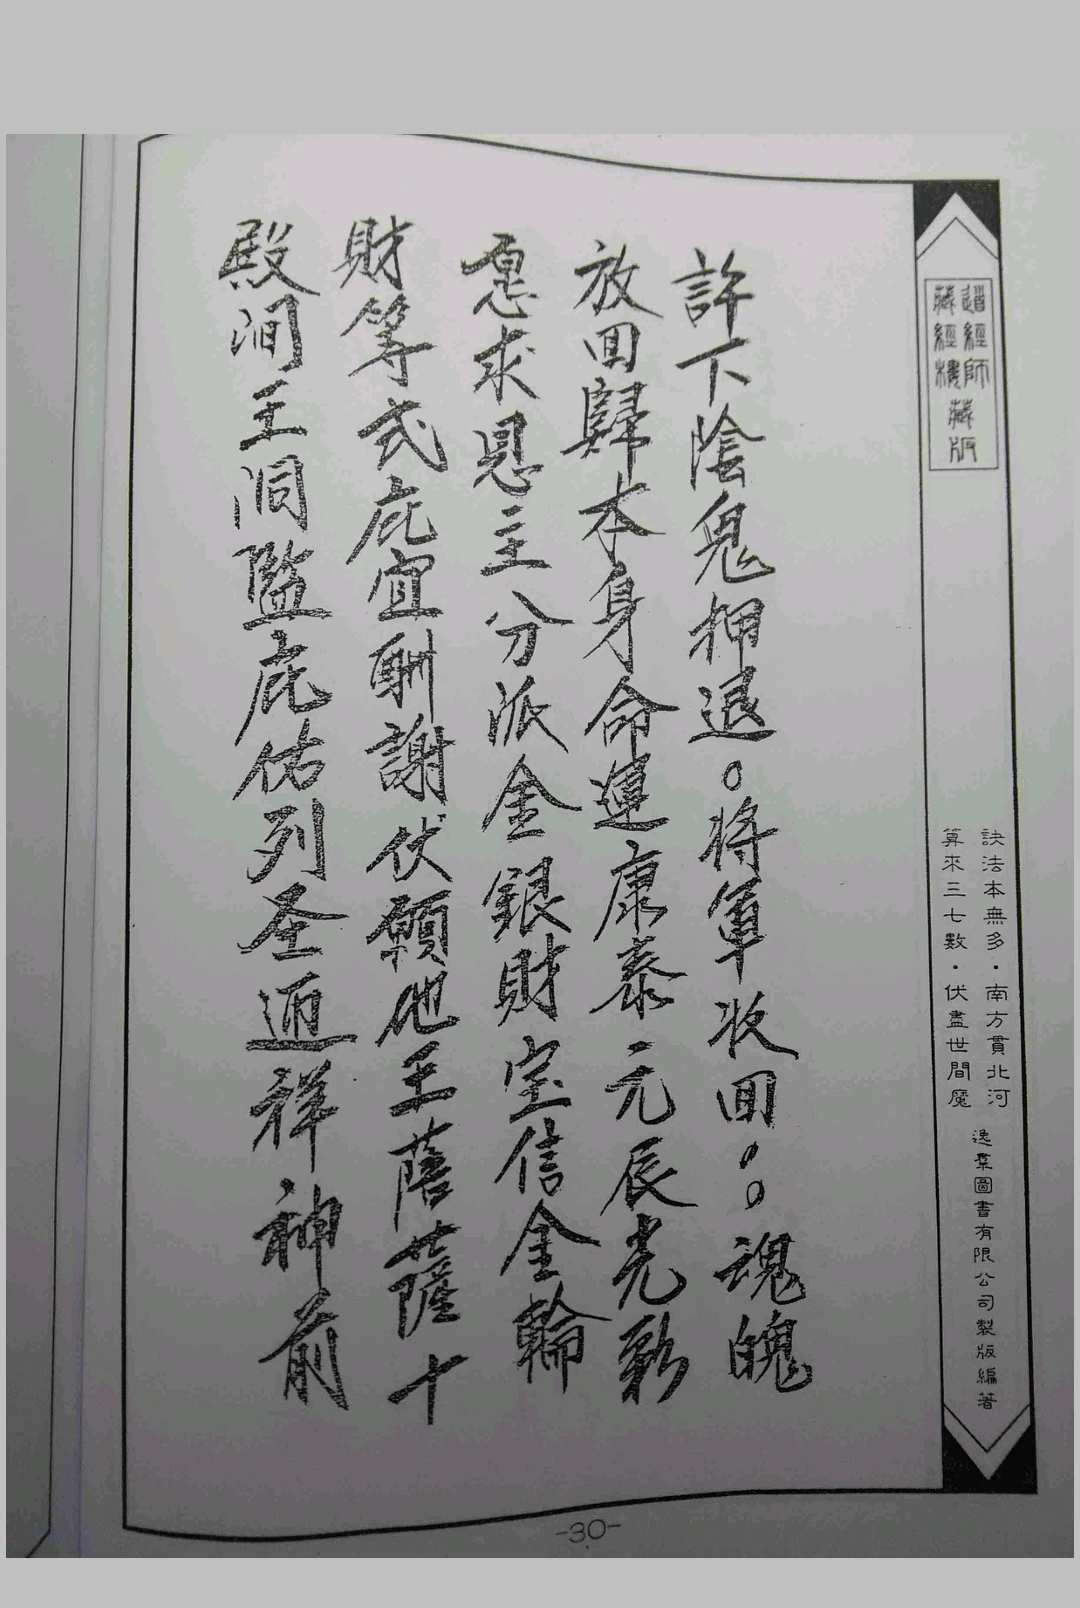 道經師
藏經樓
藏版
訣法本無多·南方貫北河
算來三七數·伏盡世間魔
逸羣圖書有限公司製版編著
許下陰鬼押退。將軍收回:。魂魄
放回歸本身命運康泰元辰光彩
恳求恩主分派金銀財宝信金輪
財等式庇宜酬謝伏願地王菩薩十
殿间王洞鑑庇佑列圣迊祥神前
-30-